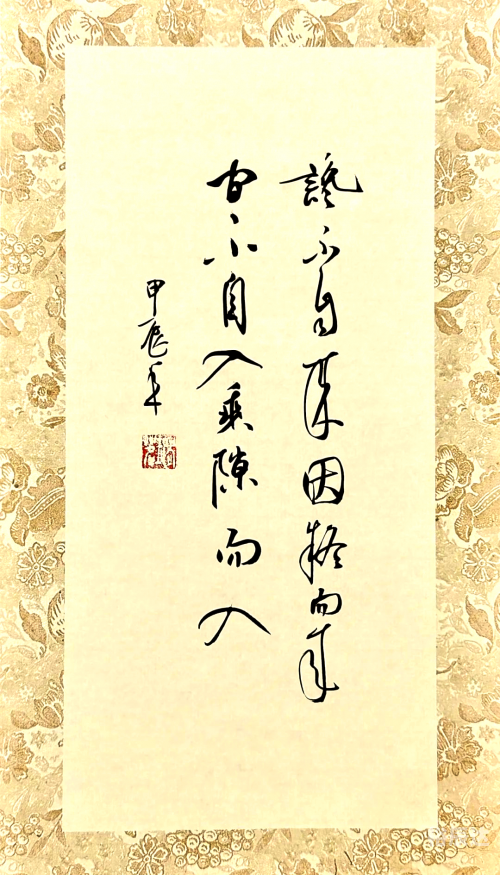 讒不自來因疑而來
間不自入乘隙而入
甲辰年